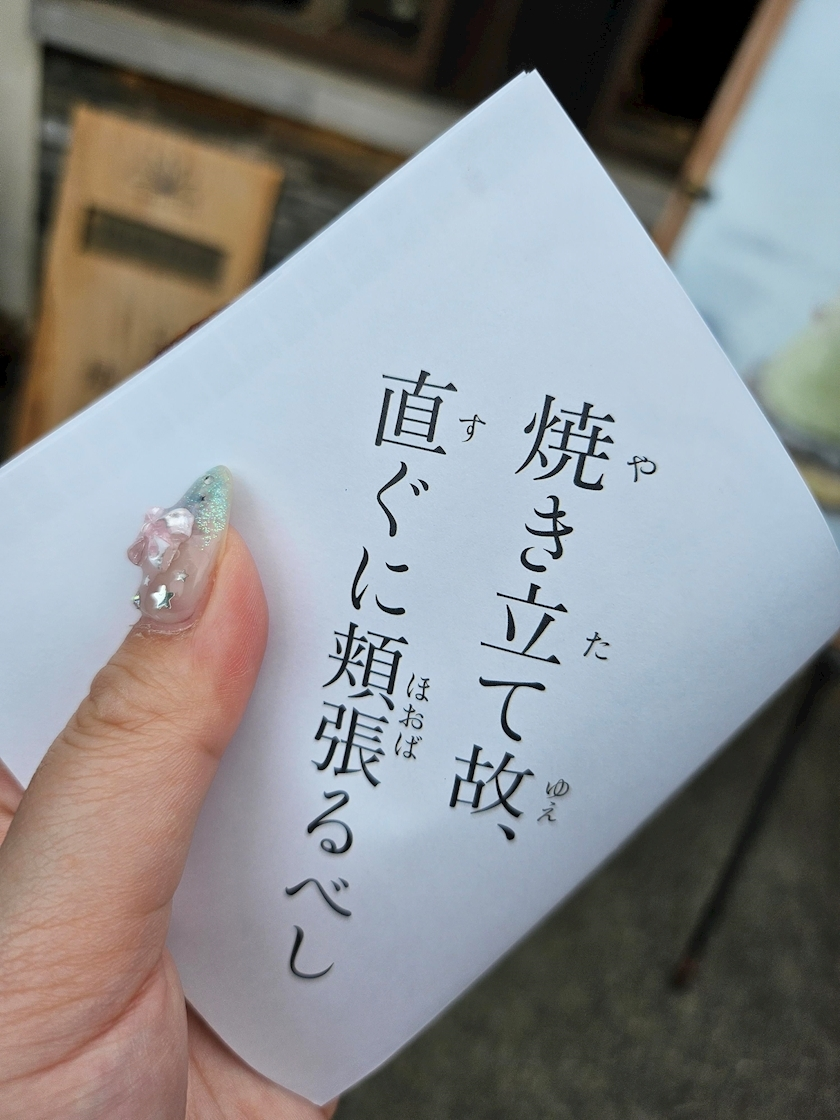 焼き立て故、
直ぐに頬張るべし
や
た
ゆえ
す
ほおば